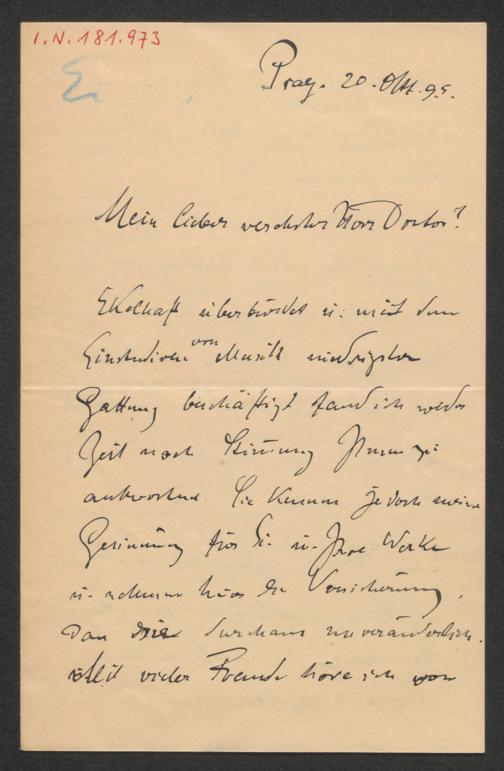 I.N. 181.973
Prag. 20. Okt. 95.
Mein lieber verehrter Herr Doctor!
Ekelhaft überbürdet u: mit dem
Einstudiren von Musik niedrigster
Gattung beschäftigt fand ich weder
Zeit noch Stimmung Ihnen zu
antworten. Sie kennen jedoch meine
Gesinnung für Sie u. Ihre Werke
u. nehmen hier die Versicherung,
dass durchaus unveränderlich.
Mit vieler Freude höre ich von